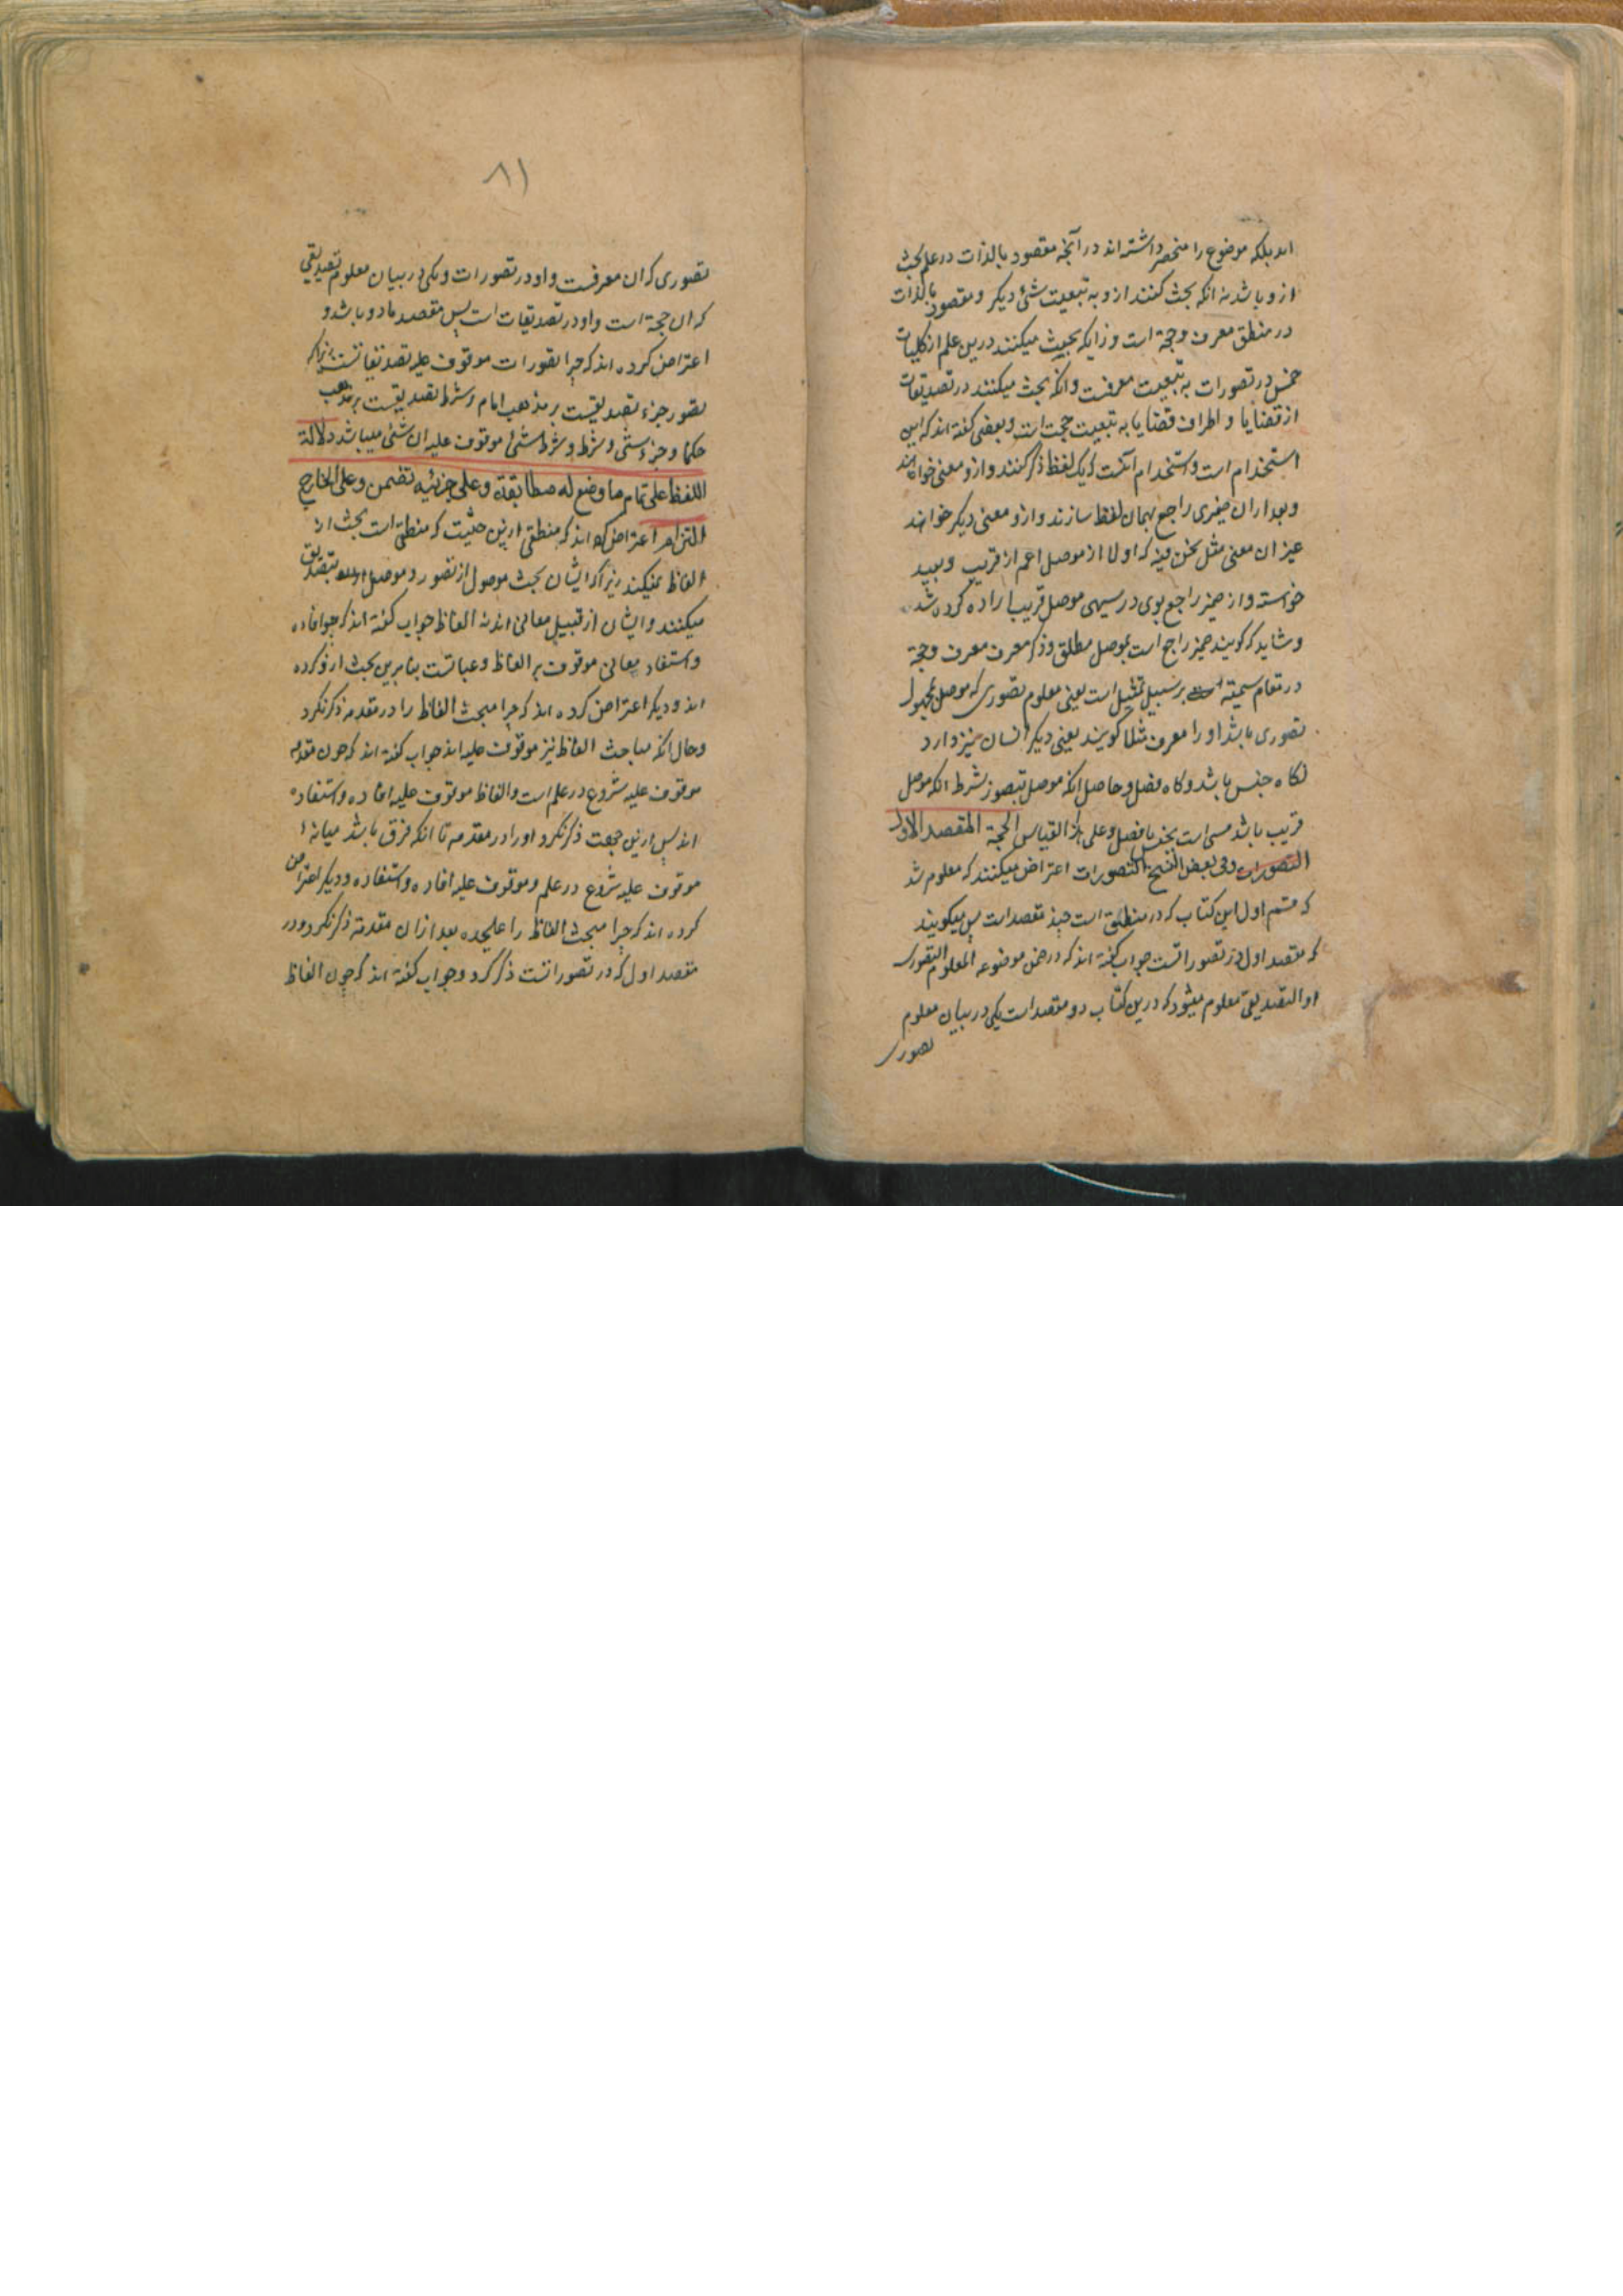 اند بلکه موضوع را منحصر داشته اند در آنچه مقصود بالذات در علم بحث
ازو باشد نه انکه بحث کنند ازو به تبعیت شیٔ دیگر و مقصود بالذات
در منطق معرف و حجة است و زانکه بحث میکنند درین علم از کلیات
خمس در تصورات به تبعیت معرفست وانکه بحث میکنند در تصدیقات
از قضایا و اطراف قضایا به تبعیت حجت است و بعضی گفته اند که این
استخدام است و استخدام آنست که یک لفظ ذکر کنند و ازو معنی خواهند
و بعد از ان ضمیری راجع بهمان لفظ سازند و ازو معنی دیگر خواهند
غیر ان معنی مثل نحن فیه که اولا از موصل اعم از قریب و بعید
خواسته و از ضمیر راجع بوی در سیمی موصل قریب اراده کرده شد
و شاید که کویند ضمیر راجع است بموصل مطلق و ذکر معرف معرف و حجة
در مقام تسمیته بر سبیل تمثیل است یعنی معلوم تصوری که موصل بمجهول
تصوری باشد او را معرف مثلا کویند یعنی دیکر انسان نیز دارد
کاه جنس باشد و کاه فصل و حاصل انکه موصل بتصور بشرط انکه موصل
قریب باشد مسمی است بجنس یا فصل و علی هذا القیاس الحجة المقصد الاول
التصورات وفی بعض النسخ التصورات اعتراض میکنند که معلوم شد
که قسم اول این کتاب که در منطق است چند مقصد است پس میکویند
که مقصد اول در تصوراتست جواب کفته اند که در ضمن موضوعه المعلوم التصوری
او التصدیقی معلوم میشود که درین کتاب دو مقصد است یکی در بیان معلوم
تصوری
٨١
تصوری که ان معرفست و او در تصورات و یکی در بیان معلوم تصدیقی
که ان حجة است و او در تصدیقات است پس مقصد ما دو باشد و
اعتراض کرده اند که چرا تصورات موقوف علیه تصدیقاتست زیراکه
تصور جزء تصدیقیست بر مذهب امام و شرط تصدیقیست بر مذهب
حکما و جزء شیٔ و شرط و شرط شیٔ موقوف علیه ان شیٔ میباشد دلالة
اللفظ علی تمام ما وضع له مطابقة و علی جزئیه تضمن و علی الخارج
التزام اعتراض کرده اند که منطقی ازین حیثیت که منطقی است بحث از
الفاظ نمیکند زیراکه ایشان بحث موصول از تصور و موصل بتصدیق
میکنند و ایشان از قبیل معانی اند نه الفاظ جواب کفته اند که چو افاده
و استفاده معانی موقوف بر الفاظ و عباراتست بنا برین بحث ازو کرده
اند و دیکر اعتراض کرده اند که چرا مبحث الفاظ را در مقدمه ذکر نکرد
و حال انکه مباحث الفاظ نیز موقوف علیه اند جواب کفته اند که چون مقدمه
موقوف علیه شروع در علم است و الفاظ موقوف علیه افاده و استفاده
اند پس ازین جهت ذکر نکرد او را در مقدمه تا انکه فرق باشد میانه
موقوف علیه شروع در علم و موقوف علیه افاده و استفاده و دیکر اعتراض
کرده اند که چرا مبحث الفاظ را علیحده بعد از ان مقدمة ذکر نکرد و در
مقصد اول که در تصوراتست ذکر کرد و جواب کفته اند که چون الفاظ